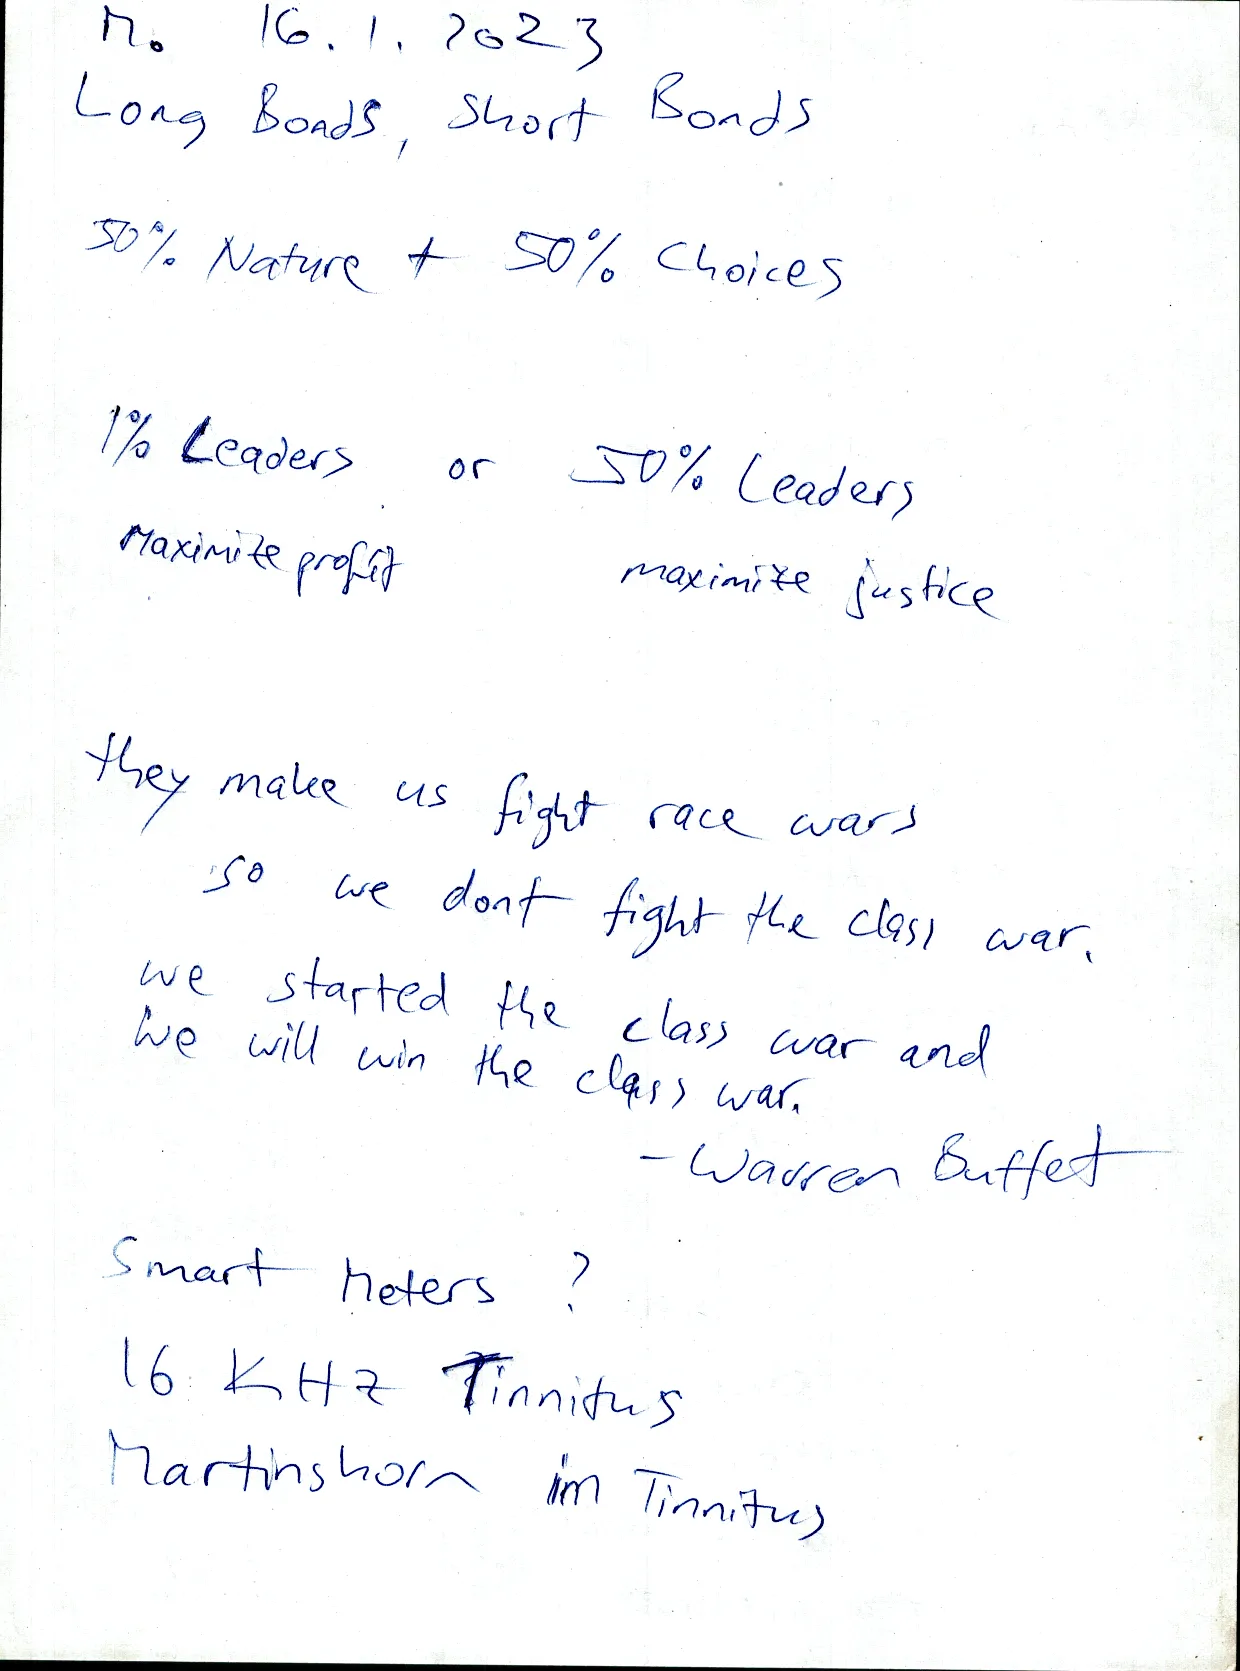 M. 16.1.2023
Long Bonds, Short Bonds
50% Nature + 50% Choices
1% Leaders or 50% Leaders
Maximize profit maximize justice
they make us fight race wars
so we dont fight the class war.
we started the class war and
we will win the class war.
- Warren Buffet
Smart Meters ?
16 KHZ Tinnitus
Martinshorn im Tinnitus